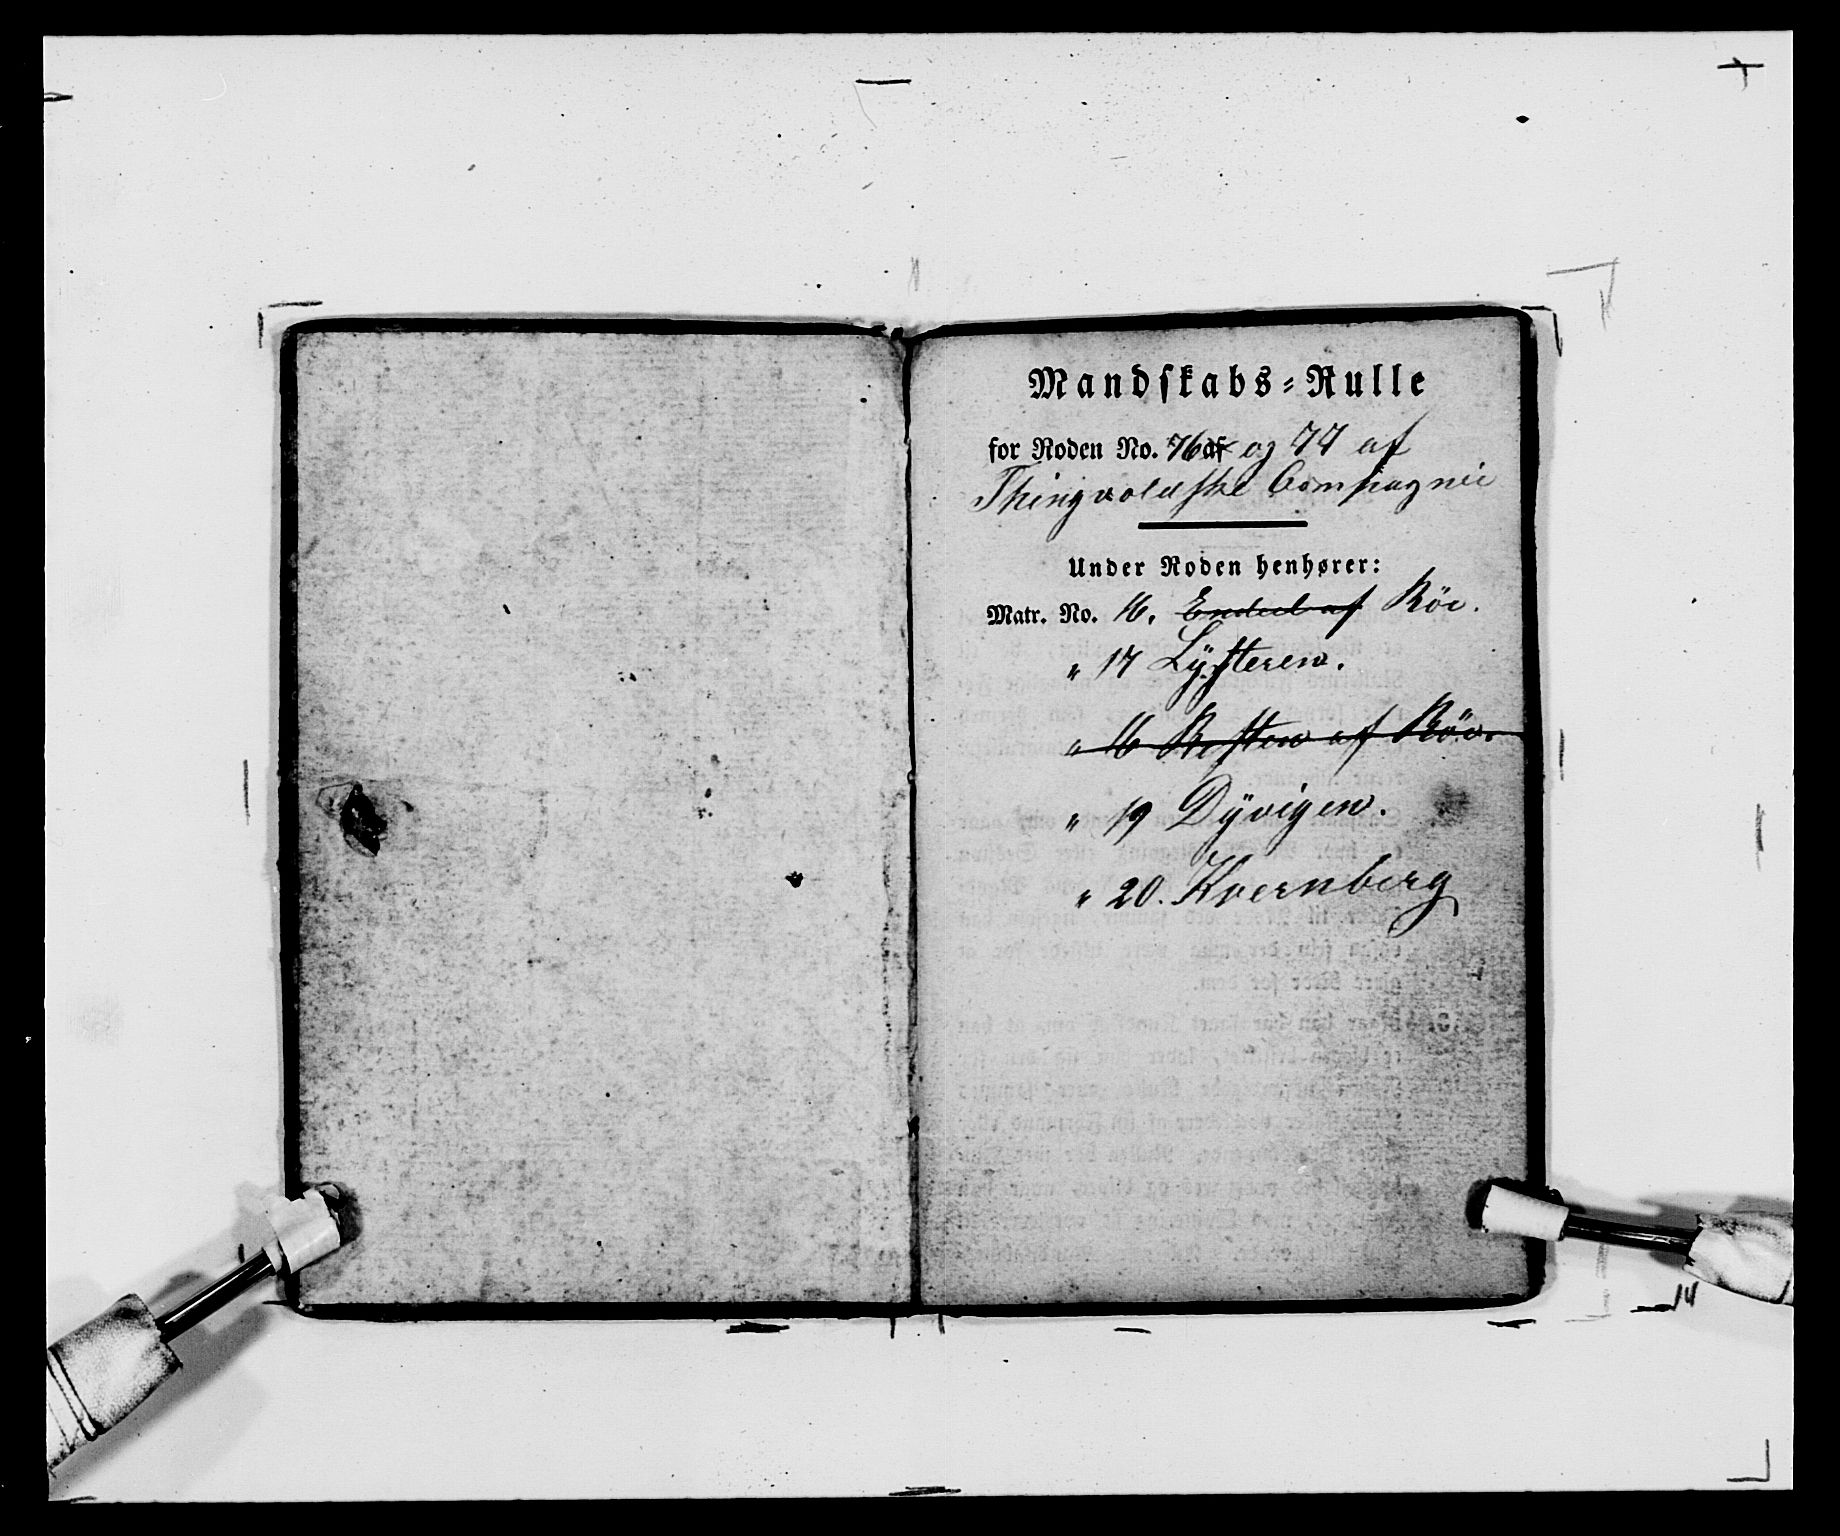 Mandskabs-Rulle
for Roden No. 76 af og 77 af
Thingvoldske Compagnie
Under Roden henhører:
Matr. No. 16. Endeel af Röe.
" 17 Lÿsteren.
" 16 Resten af Röe.
" 19 Dÿvigen.
" 20. Kvernberg
14